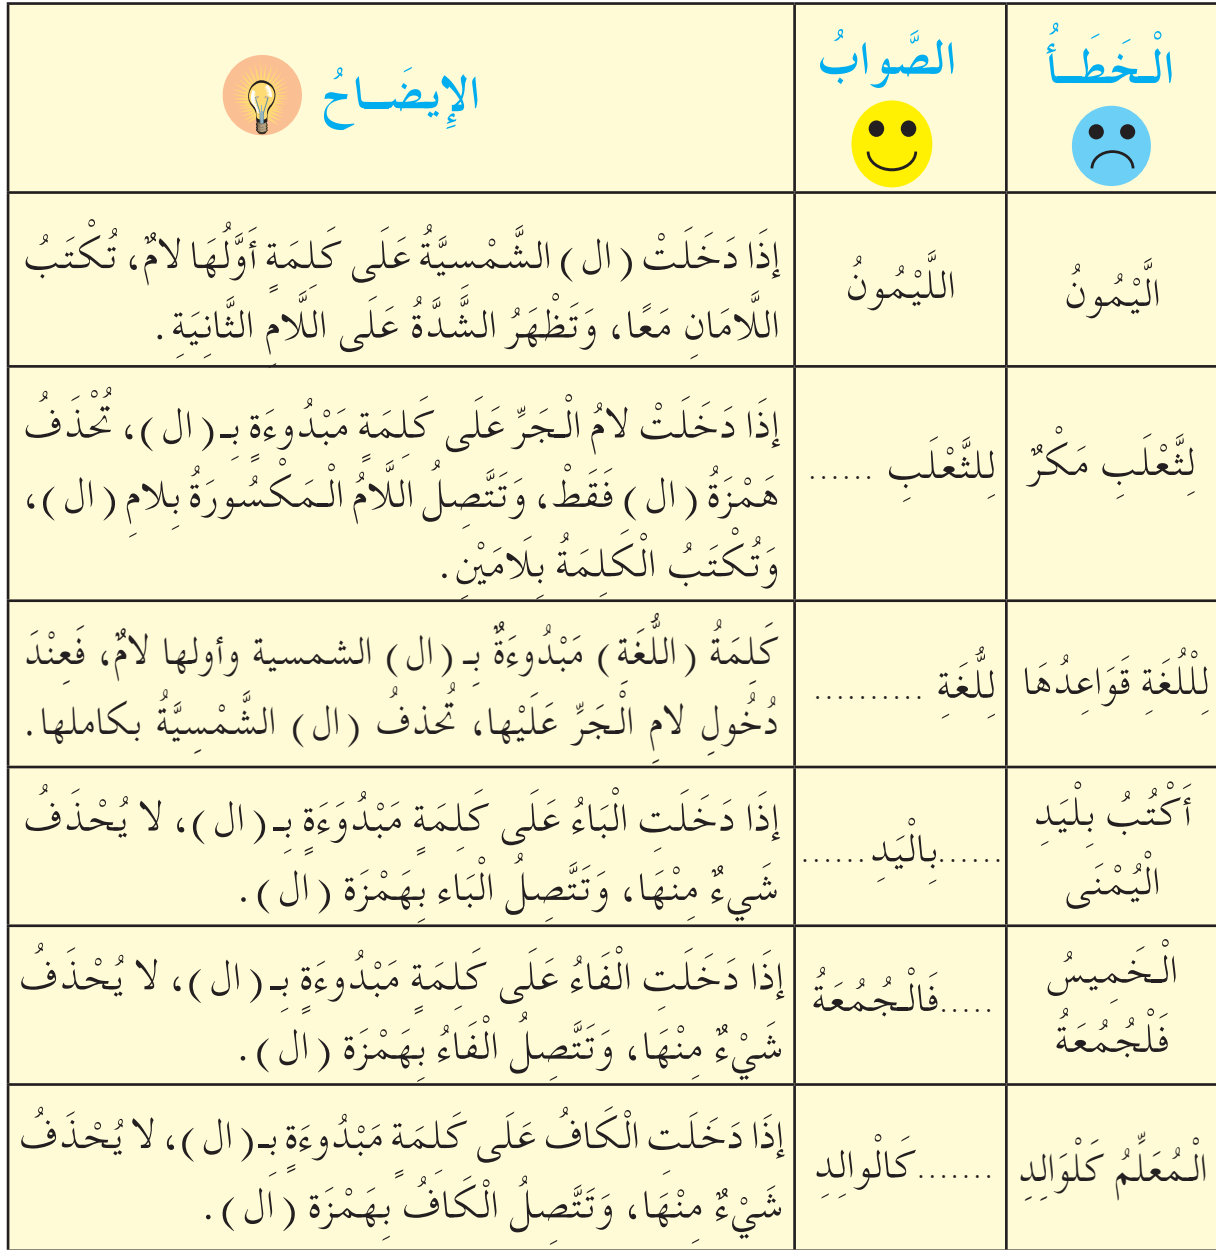 الْخَطَــأُ
الصَّوابُ
الإِيضَــاحُ
الَّيْمُونُ
اللَّيْمُونُ
إِذَا دَخَلَتْ ( ال ) الشَّمْسِيَّةُ عَلَى كَلِمَةٍ أَوَّلُهَا لامٌ، تُكْتَبُ
اللَّامَانِ مَعًا، وَتَظْهَرُ الشَّدَّةُ عَلَى اللَّامِ الثَّانِيَةِ.
لِثَّعْلَبِ مَكْرٌ
لِلثَّعْلَبِ ......
إِذَا دَخَلَتْ لامُ الْجَرِّ عَلَى كَلِمَةٍ مَبْدُوءَةٍ بِـ ( ال )، تُحْذَفُ
هَمْزَةُ ( ال ) فَقَطْ، وَتَتَّصِلُ اللَّامُ الْمَكْسُورَةُ بِلامِ ( ال )،
وَتُكْتَبُ الْكَلِمَةُ بِلَامَيْنِ.
لِلْلُغَةِ قَوَاعِدُهَا
لِلُّغَةِ ..........
كَلِمَةُ (اللُّغَةِ) مَبْدُوءَةٌ بِـ (ال) الشمسية وأولها لامٌ، فَعِنْدَ
دُخُولِ لامِ الْجَرِّ عَلَيْها، تُحذفُ (ال) الشَّمْسِيَّةُ بكاملها.
أَكْتُبُ بِلْيَدِ
الْيُمْنَى
......بِالْيَدِ......
إِذَا دَخَلَتِ الْبَاءُ عَلَى كَلِمَةٍ مَبْدُوَءَةٍ بِـ ( ال )، لا يُحْذَفُ
شَيءٌ مِنْهَا، وَتَتَّصِلُ الْبَاء بِهَمْزَة ( ال ).
الْخَمِيسُ
فَلْجُمُعَةُ
.....فَالْجُمُعَةُ
إِذَا دَخَلَتِ الْفَاءُ عَلَى كَلِمَةٍ مَبْدُوءَةٍ بِـ ( ال )، لا يُحْذَفُ
شَيْءٌ مِنْهَا، وَتَتَّصِلُ الْفَاءُ بِهَمْزَة ( ال ).
الْمُعَلِّمُ كَلْوَالِدِ
.......كَالْوالِدِ
إِذَا دَخَلَتِ الْكَافُ عَلَى كَلِمَةٍ مَبْدُوءَةٍ بِـ ( ال )، لا يُحْذَفُ
شَيْءٌ مِنْهَا، وَتَتَّصِلُ الْكَافُ بِهَمْزَة ( ال ).